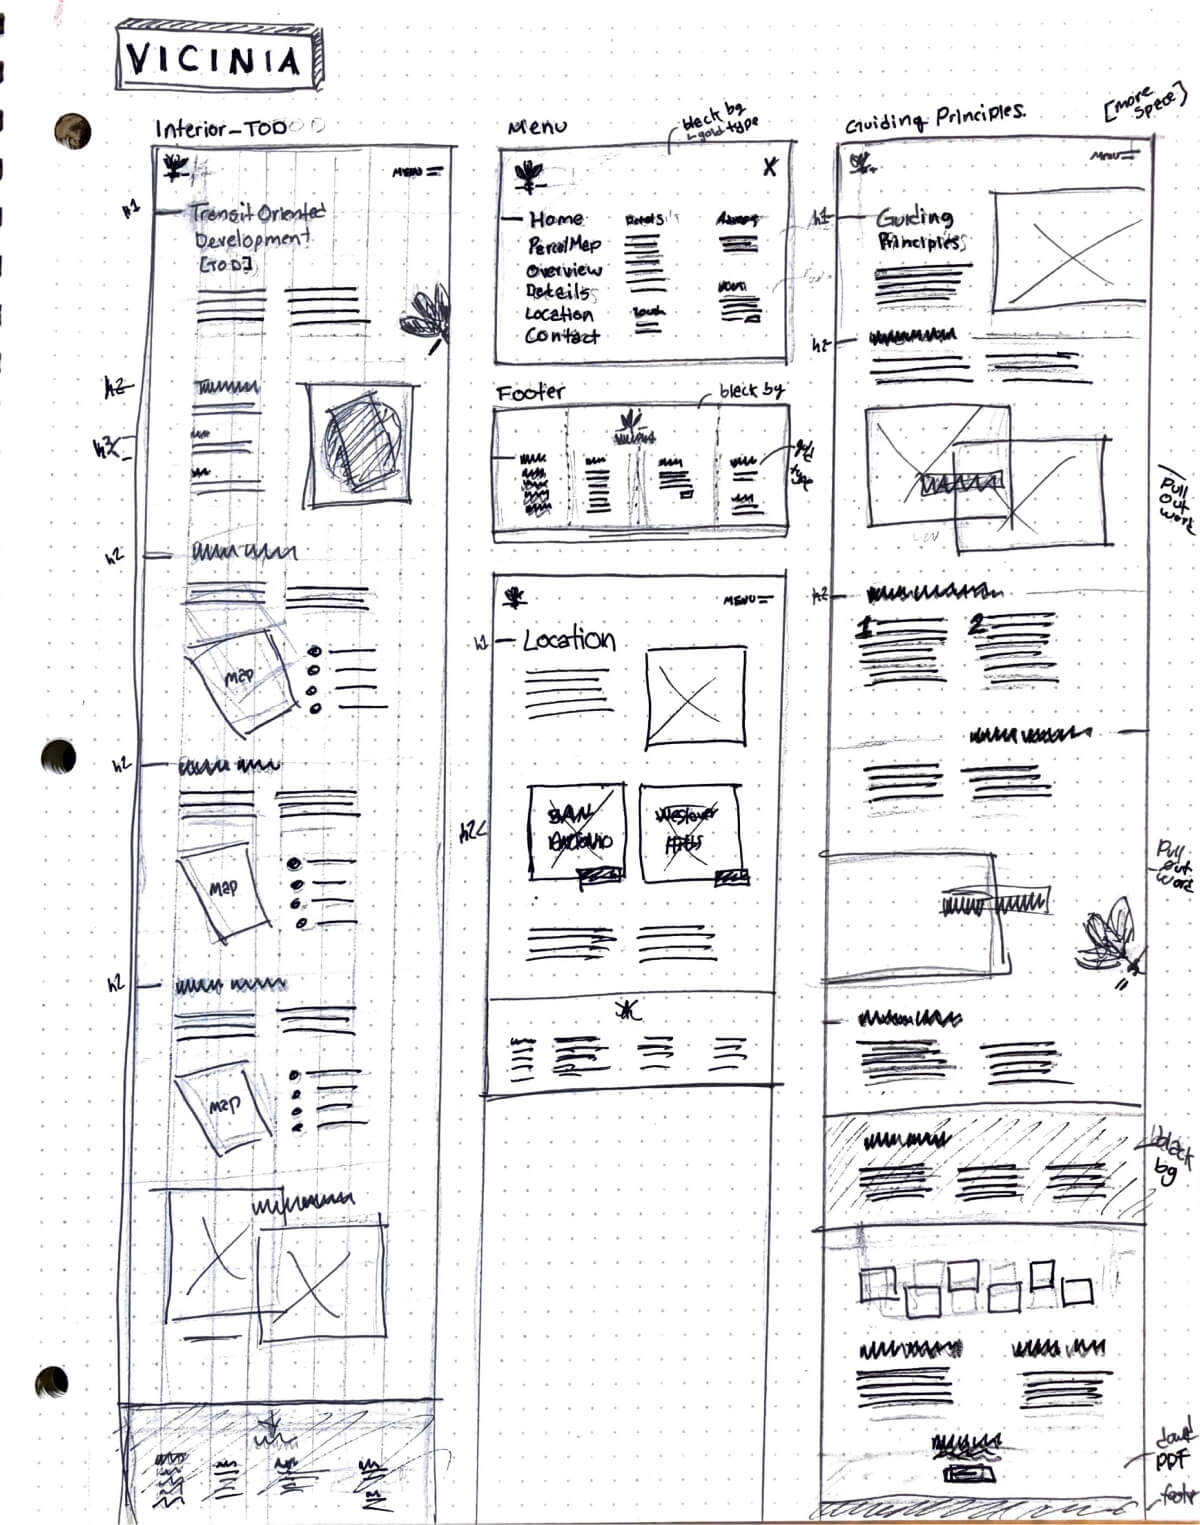 VICINIA
Interior-TOD
MENU
h1
Transit Oriented
Development
[TOD]
h2
h3
h2
map
h2
map
h2
map
Menu
black bg
gold type
X
Home
Parcel Map
Overview
Details
Location
Contact
Details
Footer
black bg
gold
type
MENU
h1
Location
h2
SAN
ANTONIO
Westover
Hills
Guiding Principles.
[more
space]
Menu
h1
Guiding
Principles
h2
Pull
Out
work
h2
1
2
Pull
Out
work
black
bg
PDF
footer